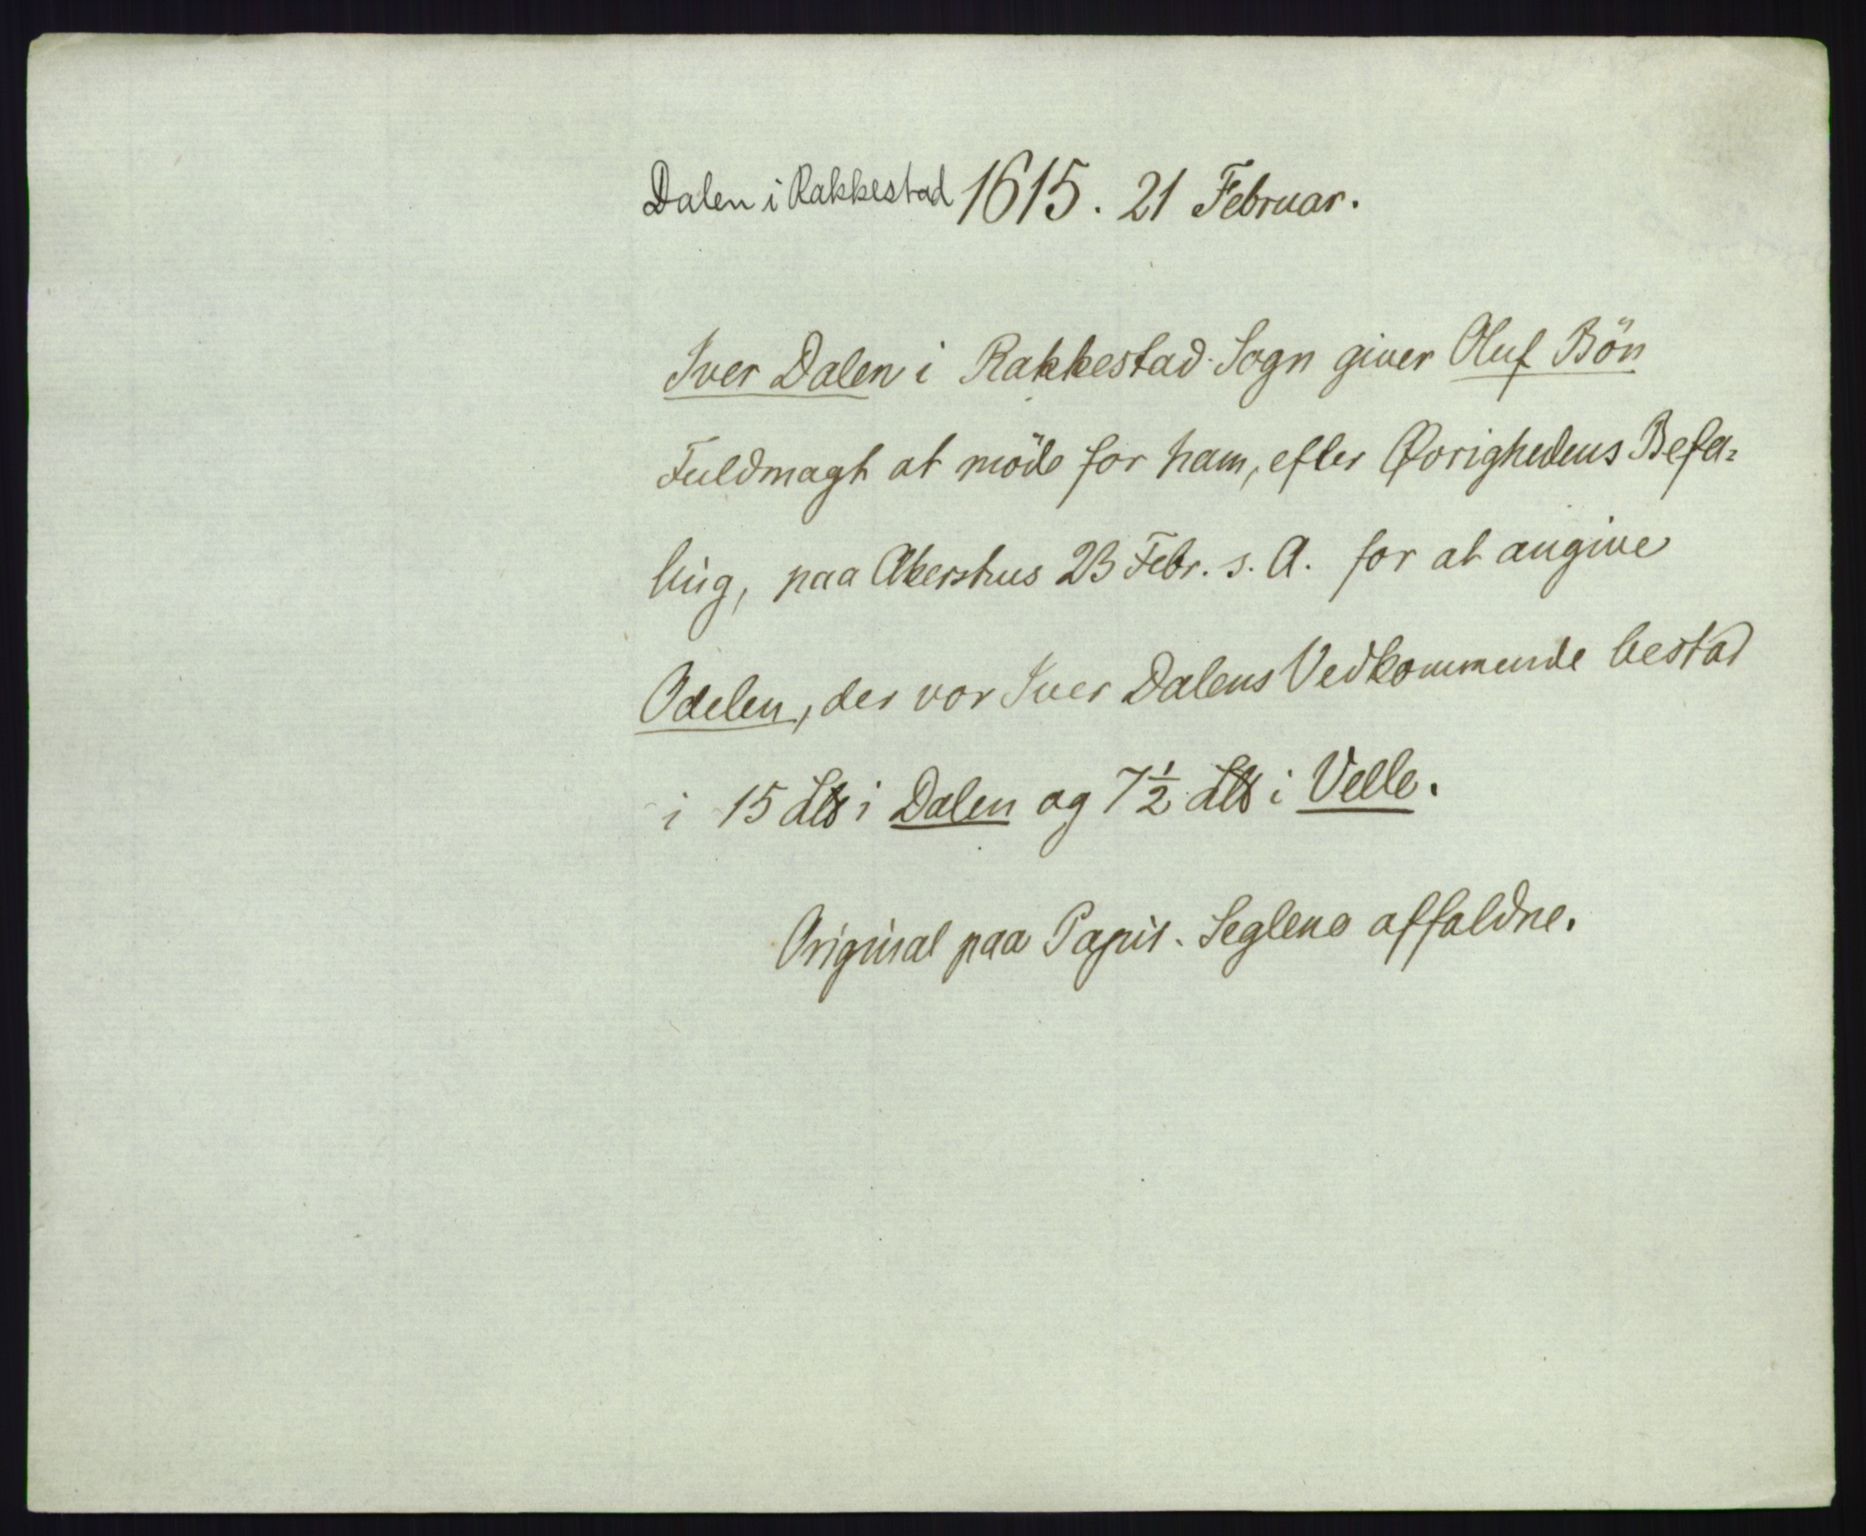 Dalen i Rakkestad 1615. 21 Februar.
Iver Dalen i Rakkestad Sogn giver Oluf Bön
Fuldmagt at möde for ham, efter Øvrighedens Befa=
ling, paa Akershus 23 Febr. s. A. for at angive
Odelen, der vor Iver Dalens Vedkommende bestod
i 15 i Dalen og 7½ i Velle.
Original paa Papir. Seglene affaldne.